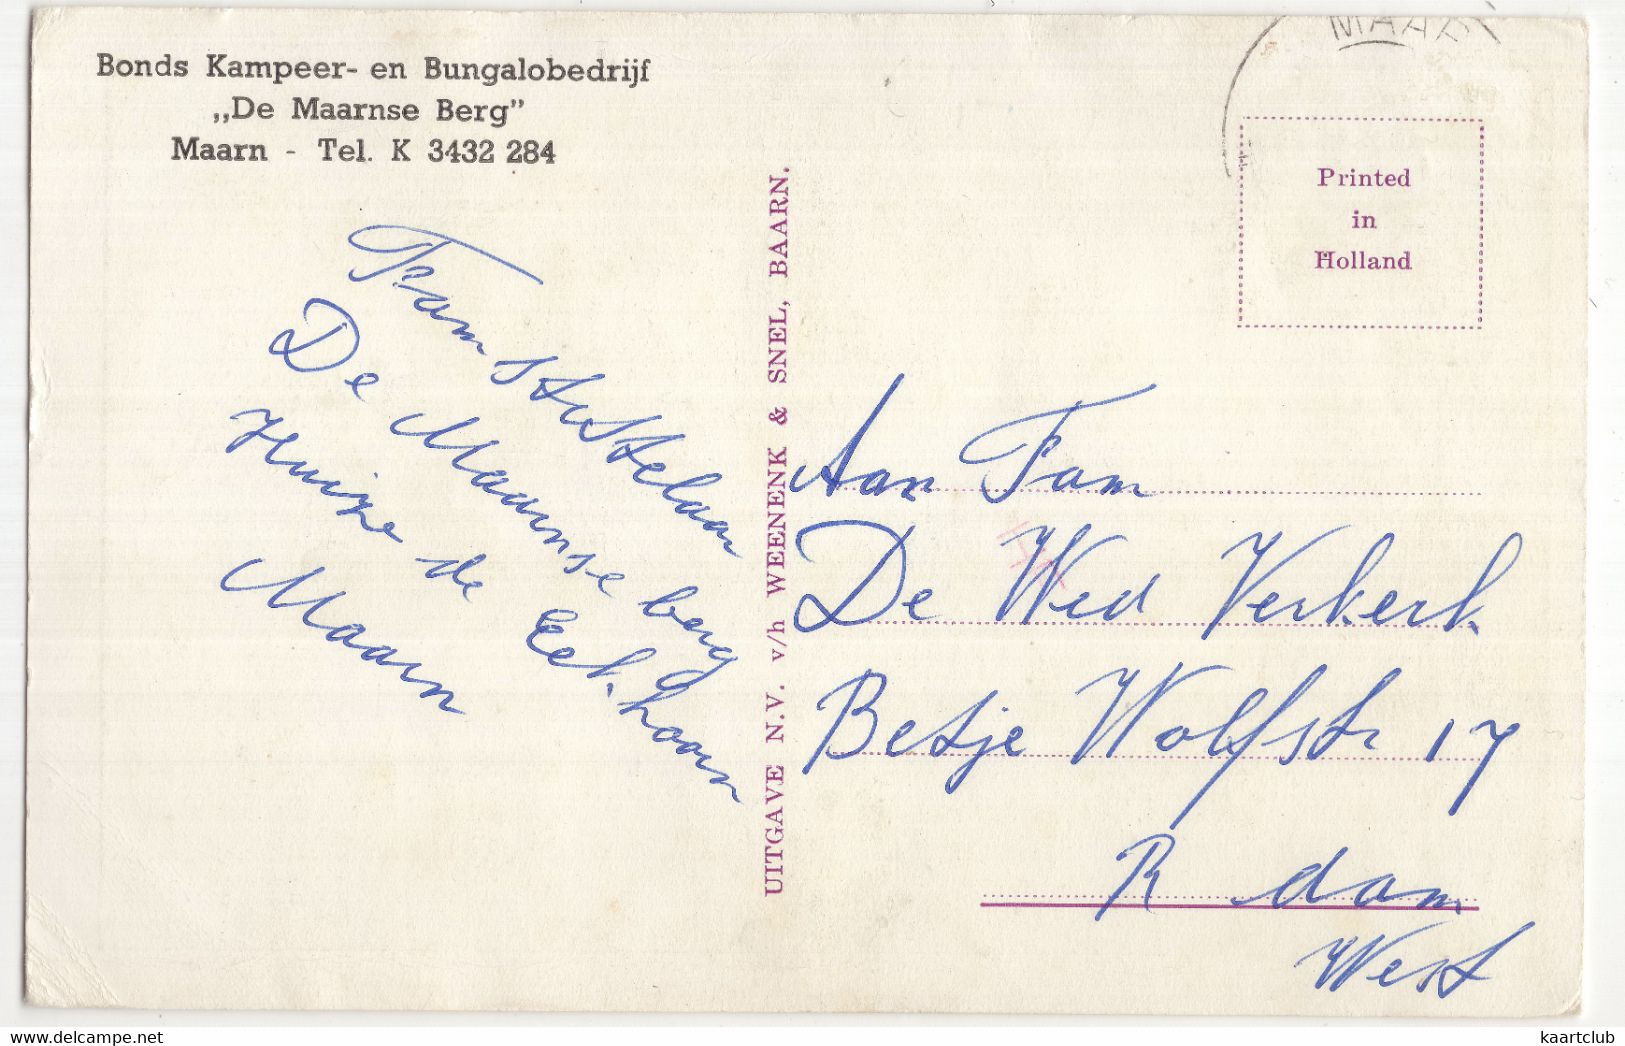 Bonds Kampeer- en Bungalobedrijf
„De Maarnse Berg”
Maarn - Tel. K 3432 284
MAAR
Printed
in
Holland
UITGAVE N.V. v/h WEENENK & SNEL, BAARN.
Fam Stuttelaar
De Maarnse berg
Huize de Eekhoorn
Maarn
Aan Fam
De Wed Verkerk
Betje Wolfstr 17
R dam
West
delcampe.net
kaartclub